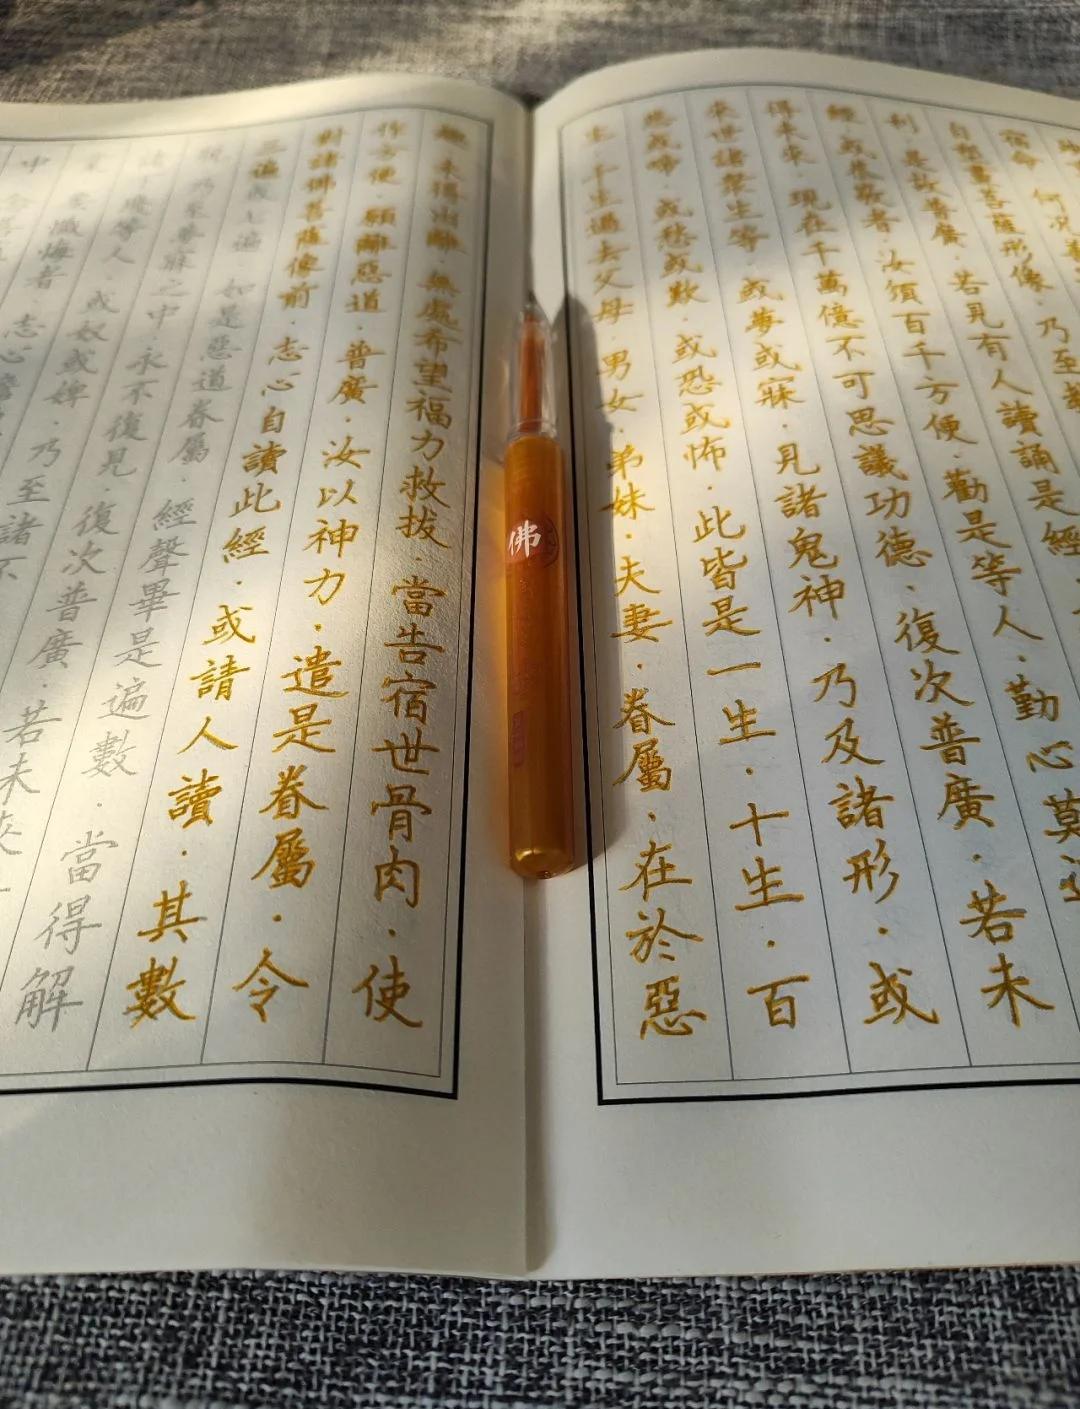 宿命·何況
自塑畫菩薩形像·乃至
利·是故普廣·若見有人讀誦是經
經·或恭敬者·汝須百千方便·勸是等人·勤心莫退
得未來·現在千萬億不可思議功德·復次普廣·若未
來世諸眾生等·或夢或寐·見諸鬼神·乃及諸形·或
悲或啼·或愁或歎·或恐或怖·此皆是一生·十生·百
生·千生過去父母·男女·弟妹·夫妻·眷屬·在於惡
趣·未得出離·無處希望福力救拔·當告宿世骨肉·使
作方便·願離惡道·普廣·汝以神力·遣是眷屬·令
對諸佛菩薩像前·志心自讀此經·或請人讀·其數
三遍或七遍·如是惡道眷屬·經聲畢是遍數·當得解
脫·乃至夢寐之中·永不復見·復次普廣·若未來
賤等人·或奴或婢·乃至諸不
業·要懺悔者·志心瞻
中
佛